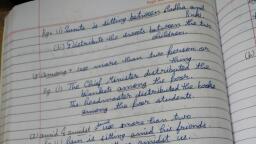 Eg:- (i) Sunita is sitting between Radha and
Rinki
(ii) Distribute the sweets between the two
children.
among - use more than two person or
thing
Eg (i) The Chief Minister distributed the
blankets among the poor.
The headmaster distributed the books
among the poor students.
amid & amidst use more than two
is sitting amid his friends.
amidst us.